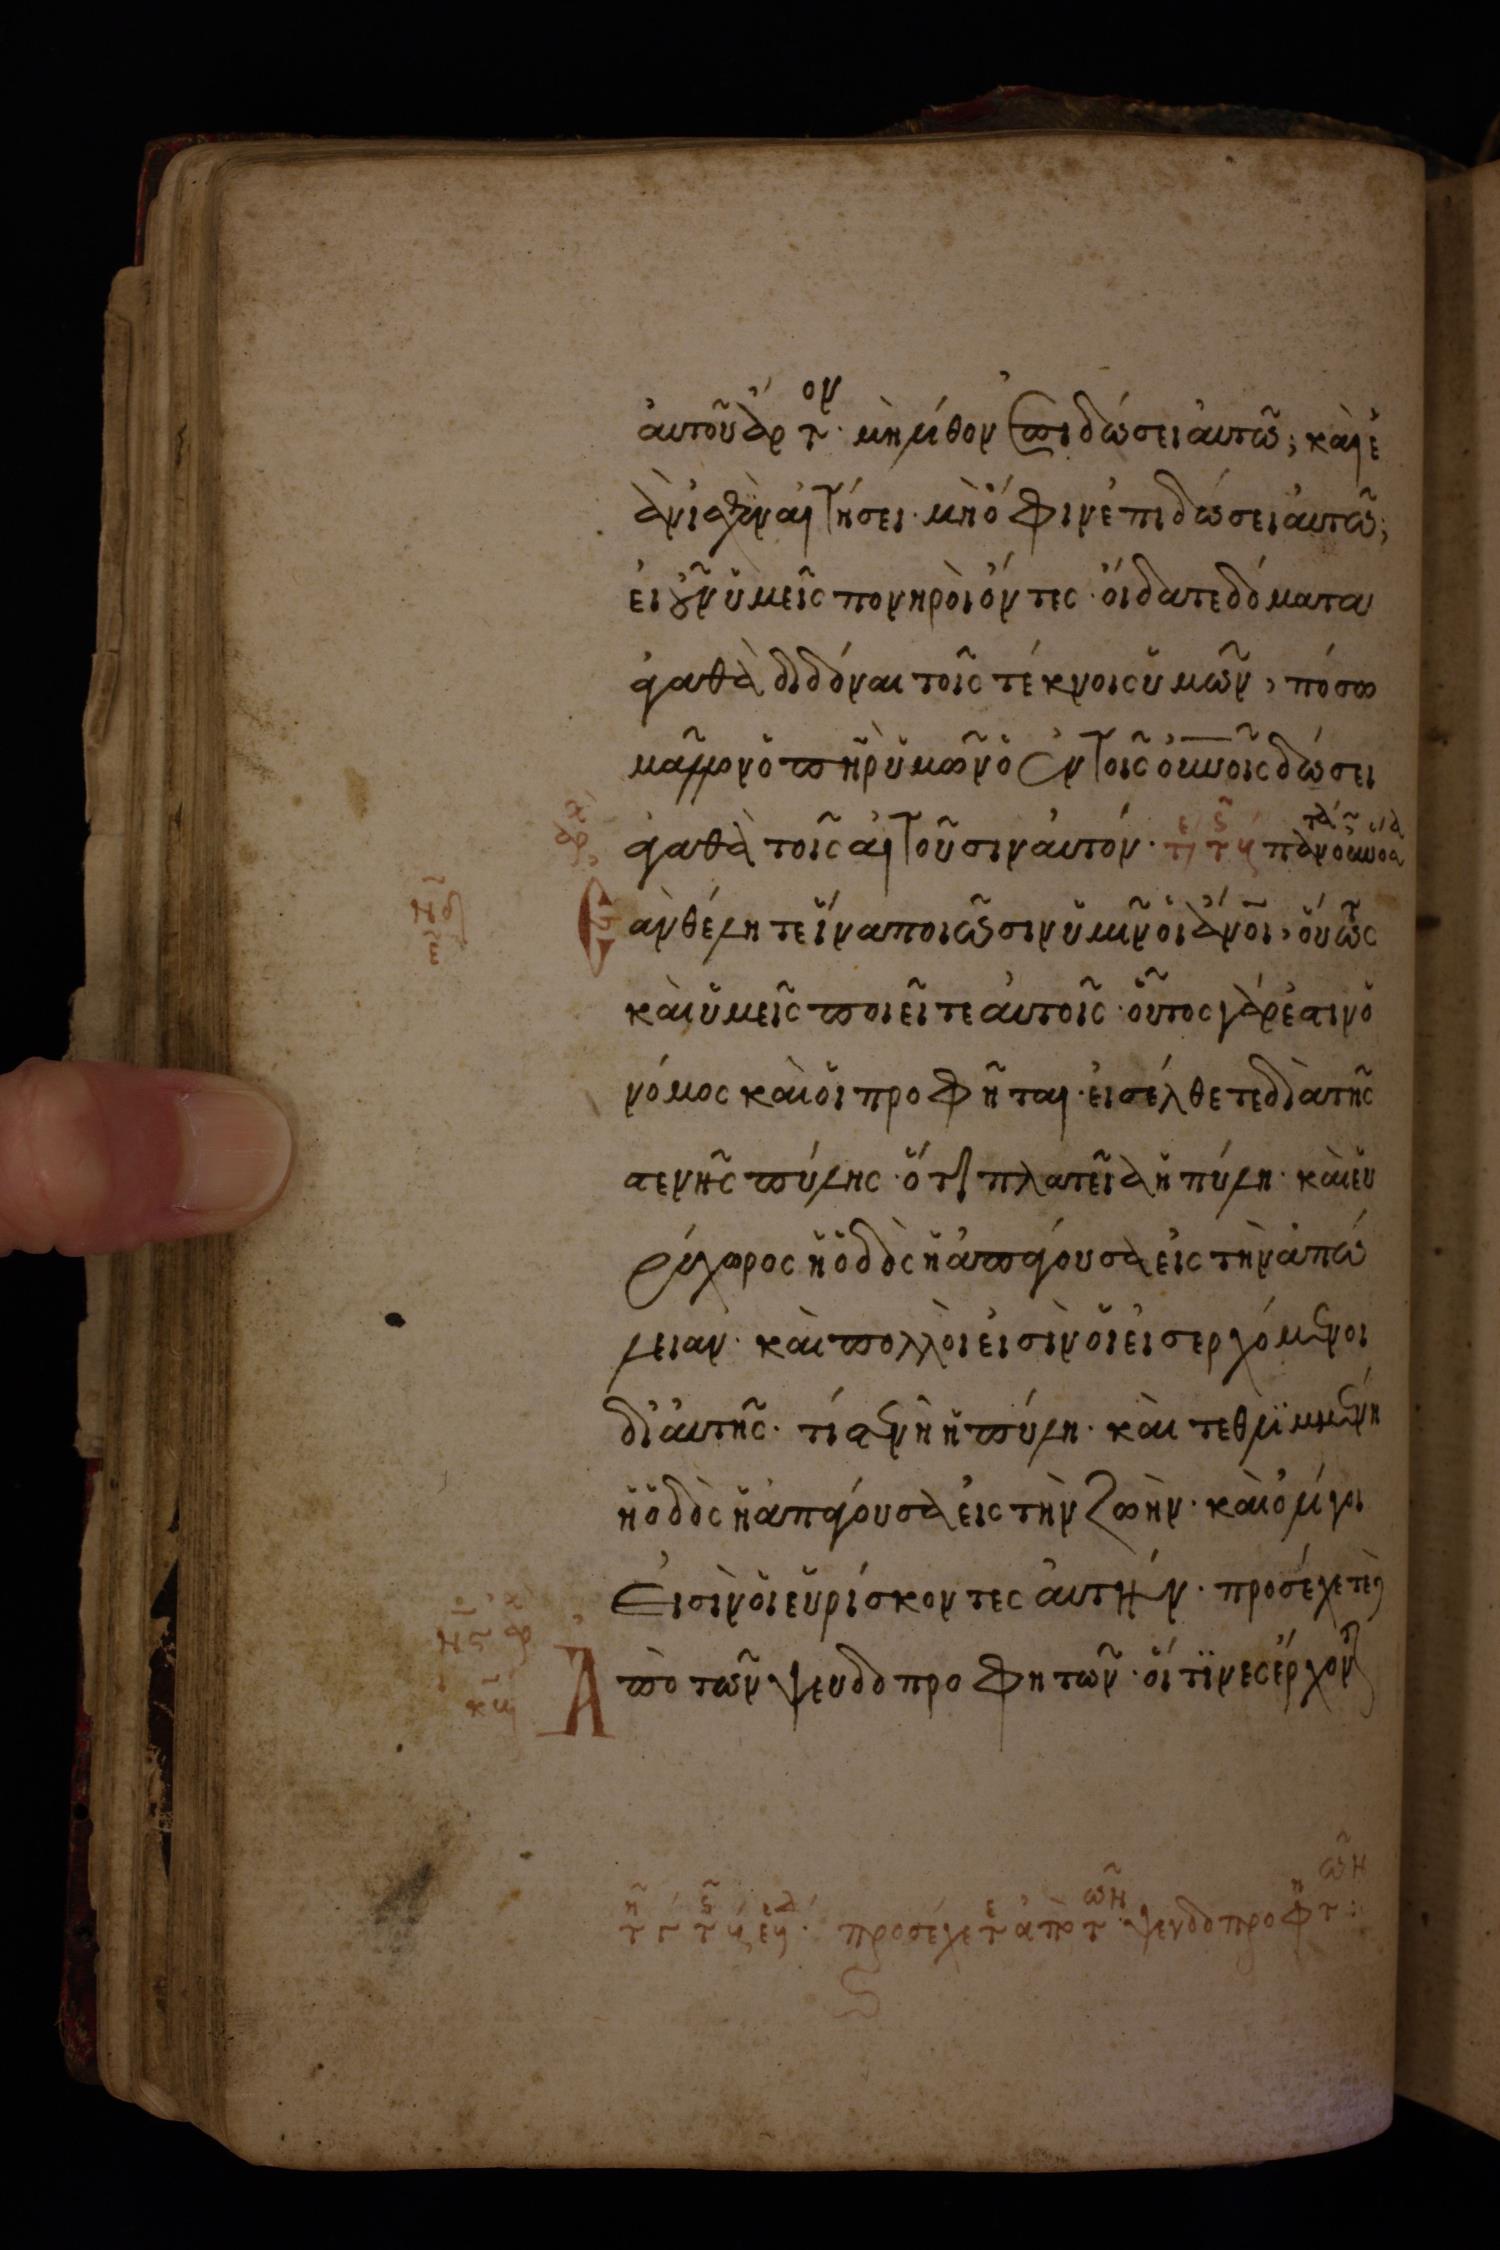 αὐτοῦ ἄρτον· μὴ λίθον ἐπιδώσει αὐτῶ; καὶ ἐ
ὰν ἰχθὺν αἰτήσει· μὴ ὄφιν ἐπιδώσει αὐτῶ;
εἰ οὖν ὑμεῖς πονηρὸι ὄντες· ὄιδατε δόματα
ἀγαθὰ διδόναι τοῖς τέκνοις ὑμῶν, πόσω
μᾶλλον ὁ πὴρ ὑμῶν ὁ ἐν τοῖς οὐνοῖς δώσει
ἀγαθὰ τοῖς αἰτοῦσιν αὐτόν· πάντα οὖν ὅσα
ἀν θέλητε ἵνα ποιῶσιν ὑμῖν ὁι ἄνοι, ὅυτως
καὶ ὑμεῖς ποιεῖτε αὐτοῖς· οὗτος γάρ ἐστιν ὁ
νόμος καὶ ὁι προφῆται· εἰσέλθετε διὰ τῆς
στενῆς πύλης· ὅτι πλατεῖα ἡ πύλη· καὶ εὐ
ρύχωρος ἡ ὁδὸς ἡ ἀπάγουσα εἰς τὴν ἀπώ
λειαν· καὶ πολλὸι εἰσὶν ὁι εἰσερχόμενοι
δι ἀυτῆς· τί στενὴ ἡ πύλη· καὶ τεθλιμμένη
ἡ ὁδὸς ἡ ἀπάγουσα εἰς τὴν ζωὴν· καὶ ὀλίγοι
Εἰσὶν ὁι εὑρίσκοντες ἀυτήν· προσέχετε
Ἀπὸ τῶν ψευδοπροφητῶν· ὅιτϊνες ἔρχονται
προσέχετε ἀπὸ τῶν ψευδοπροφητῶν: